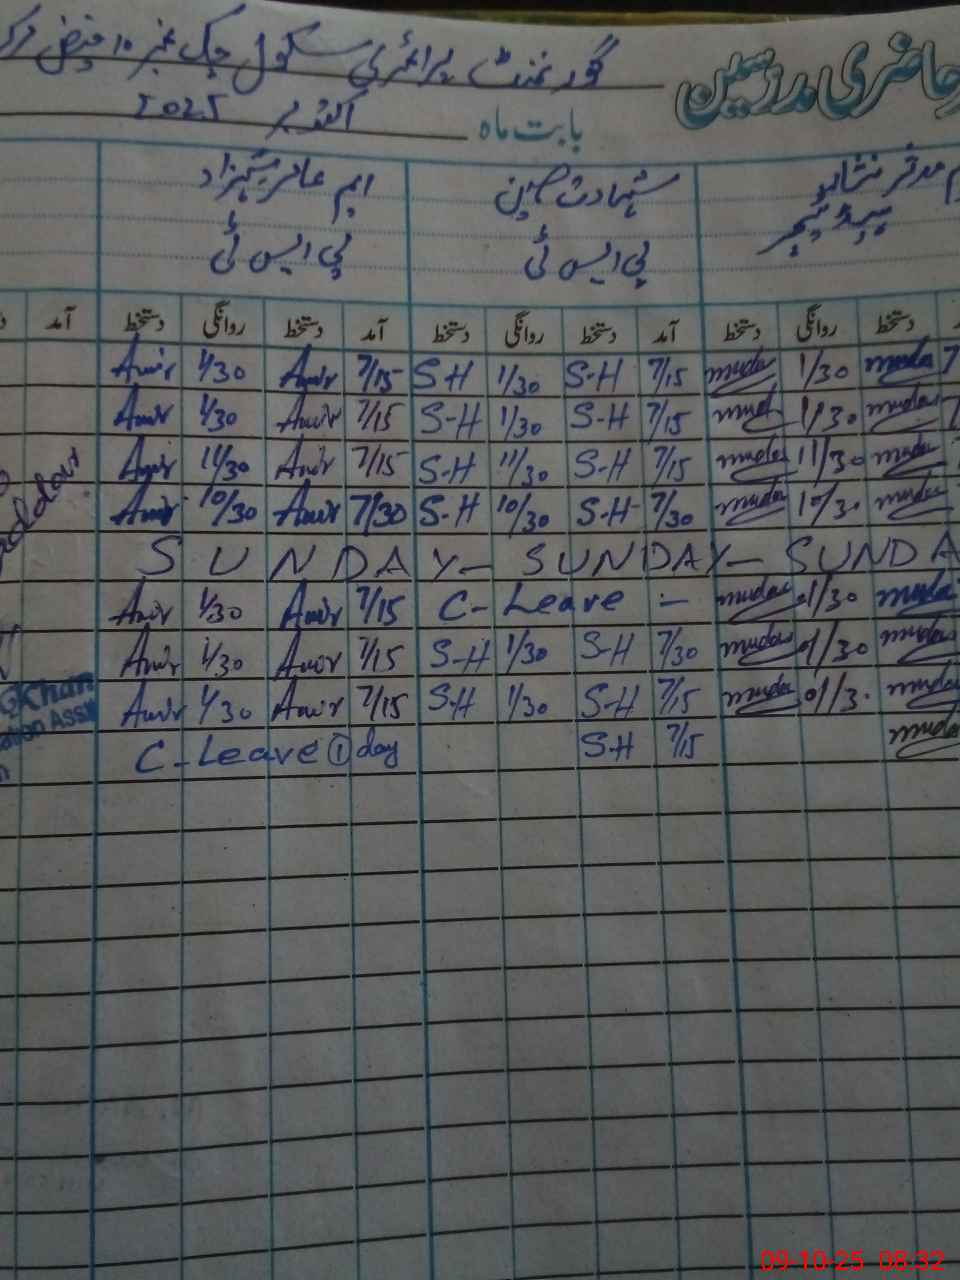 حاضری مدرسین
گورنمنٹ پرائمری سکول چک نمبر 10
بابت ماہ اکتوبر 2025
شہادت حسین ایم عامر شہزاد
ہیڈ ٹیچر پی ایس ٹی پی ایس ٹی
آمد دستخط روانگی دستخط آمد دستخط روانگی دستخط آمد دستخط روانگی دستخط
Amir 1/30 Amir 7/15 S-H 1/30 S-H 7/15 mudas 1/30 mudas 7
Amir 1/30 Amir 7/15 S-H 1/30 S-H 7/15 mud 1/30 mudas
Amir 11/30 Amir 7/15 S-H 11/30 S-H 7/15 mudas 11/30 mudas
Amir 10/30 Amir 7/30 S-H 10/30 S-H 7/30 mudas 10/30 mudas
SUNDAY- SUNDAY- SUNDA
Amir 1/30 Amir 7/15 C-Leave :- mudas 01/30 mudas
Amir 1/30 Amir 7/15 S-H 1/30 S-H 7/30 mudas 01/30 mudas
Amir 1/30 Amir 7/15 S-H 1/30 S-H 7/15 mudas 01/30 mudas
C-Leave ① day S-H 7/15 mudas
GKhan
09-10-25 08:32